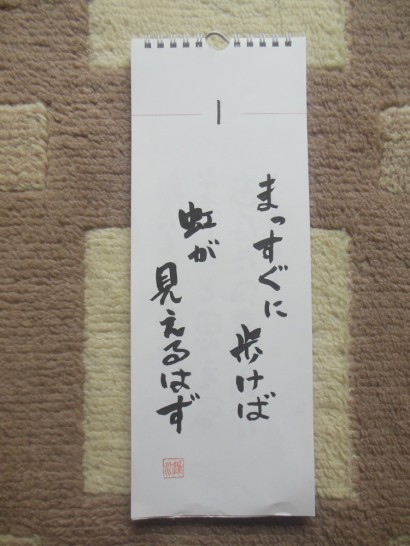 一
まっすぐに
歩けば
虹が
見えるはず